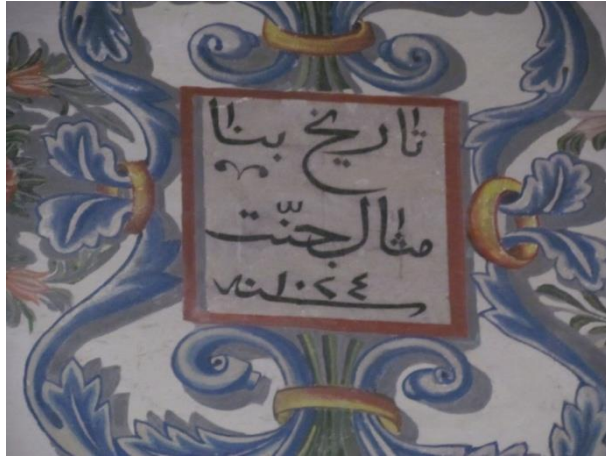 تاريخ بنا
مثال جنّت
سنه ١٠٢٤